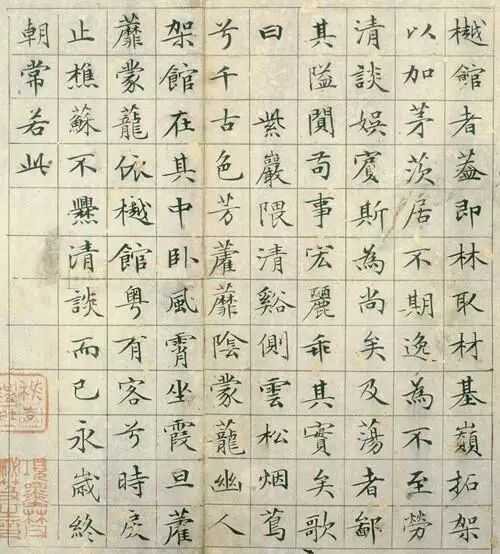 樾館者葢即林取材基嶺拓架
以加茅茨居不期逸為不至勞
清談娛賓斯為尚矣及蕩者鄙
其隘闃苟事宏麗乖其實矣歌
曰紫巖隈清谿側雲松烟蔦
兮千古色芳藿蘼陰蒙蘢幽人
架館在其中卧風霄坐霞旦藿
蘼蒙蘢依樾館粤有客兮時戾
止樵蘇不爨清談而已永歲終
朝常若此